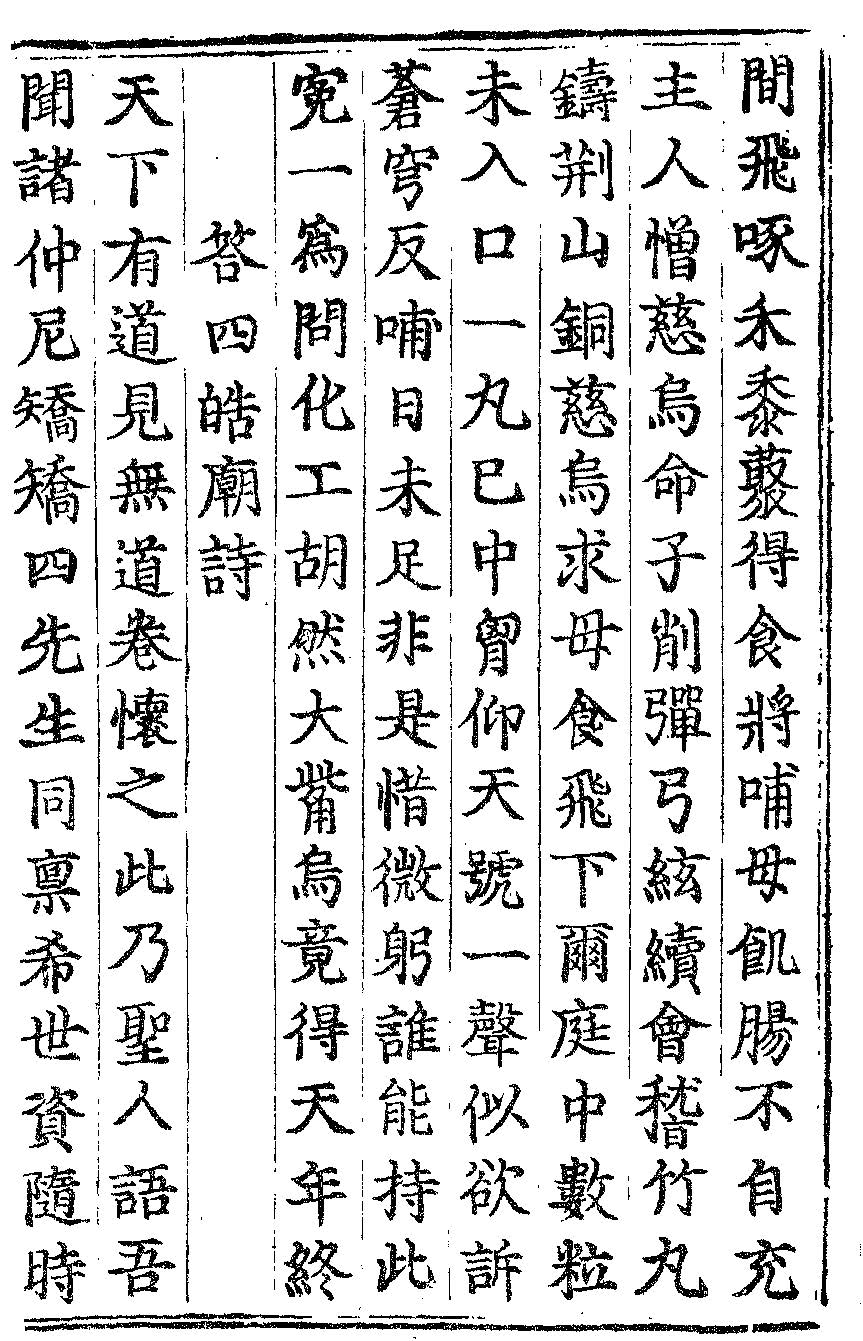 間飛啄禾黍藂得食將哺母飢腸不自充
主人憎慈烏命子削彈弓絃續會稽竹丸
鑄荆山銅慈烏求母食飛下爾庭中數粒
未入口一丸已中胷仰天號一聲似欲訴
蒼穹反哺日未足非是惜微躬誰能持此
寃一爲問化工胡然大觜烏竟得天年終
答四皓廟詩
天下有道見無道卷懷之此乃聖人語吾
聞諸仲尼矯矯四先生同禀希世資隨時